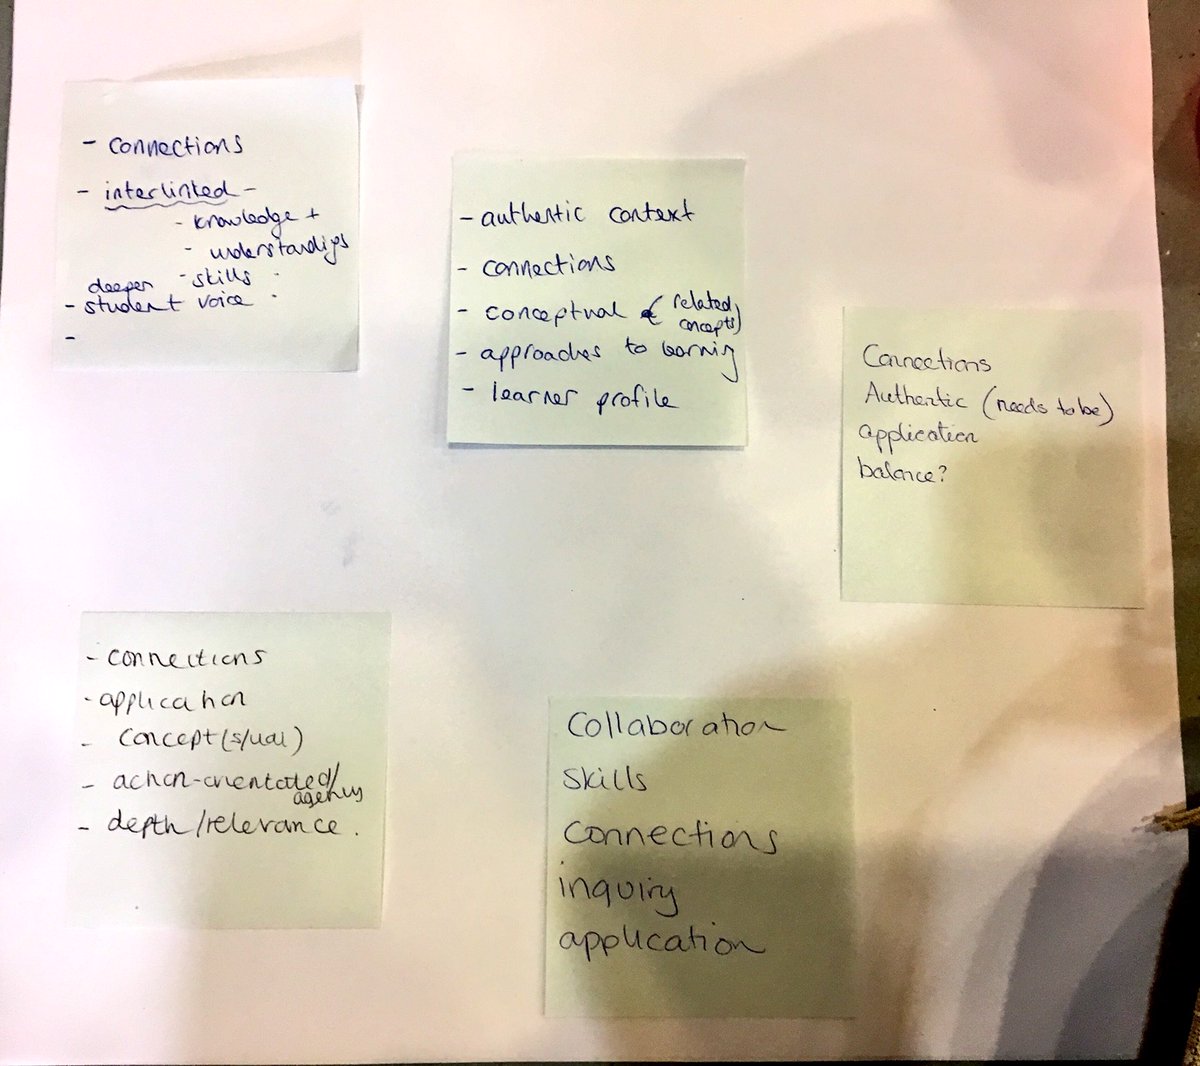 - connections
- interlinked -
- knowledge +
- understandigs
- skills
deeper
- student voice
-
- authentic context
- connections
- conceptual (related
concepts)
- approaches to learning
- learner profile
Connections
Authentic (needs to be)
application
balance?
- connections
- application
- concept(s/ual)
- action-orientated/
agency
- depth/relevance.
Collaboration
Skills
Connections
inquiry
application